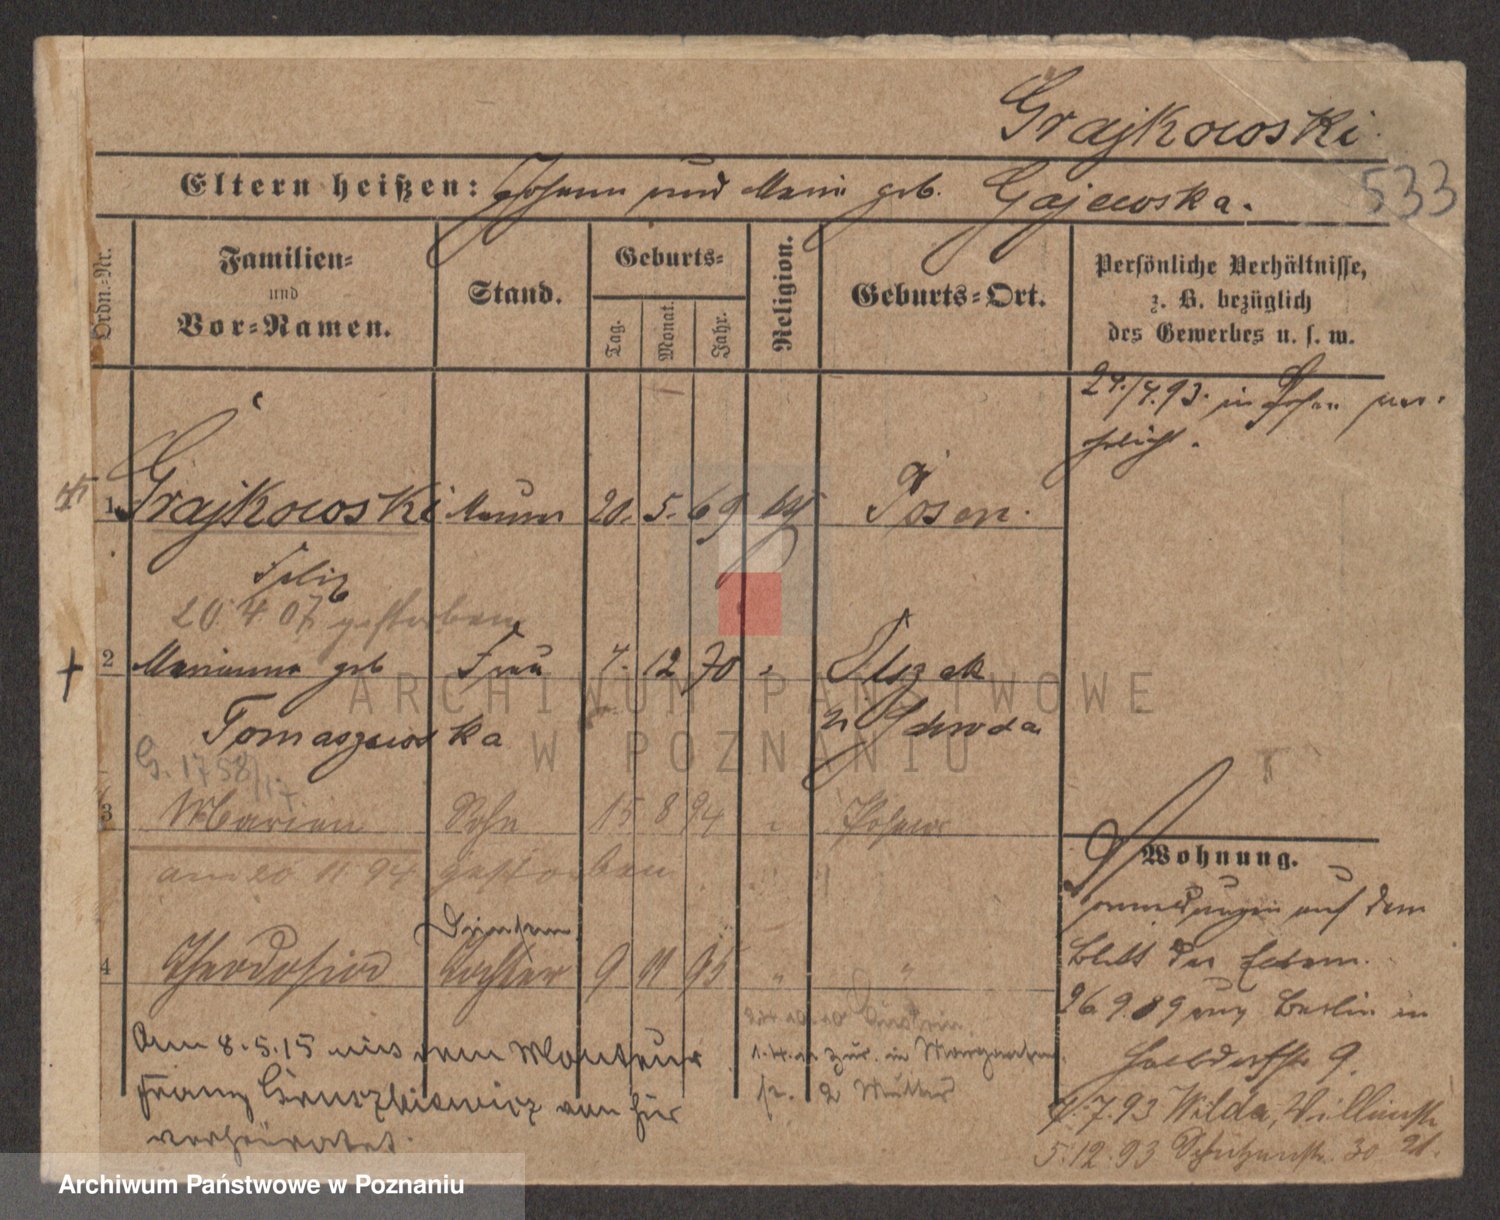 Grajkowski.
533
Eltern heißen: Johann und Marie geb. Gajewska.
Ordn.-Nr.
Familien-
und
Vor-Namen.
Stand.
Geburts-
Tag.
Monat.
Jahr.
Religion.
Geburts-Ort.
Persönliche Verhältnisse,
z. B. bezüglich
des Gewerbes u. s. w.
24./4.93. in Posen ver-
ehelicht.
1 Grajkowski Maurer 20. 5. 69 kath Posen.
Felix
20 4 07 gestorben
2 Marianna geb Frau 7. 12 70 Olszak
Tomaszewska
G. 1758/17
3 Marian Sohn 15 8 94 Posen
am 20 11 94 gestorben
4 Theodosia Tochter 9 11 95 " "
Am 8.5.15 mit dem Monteur
Franz von hier
verheiratet.
1.4. zur. in
2 Mutter
Wohnung.
auf dem
Blatt der Eltern.
26.9.89 aus Berlin in
9.
7.93 Wilda,
5.12.93 30
ARCHIWUM PAŃSTWOWE
W POZNANIU
Archiwum Państwowe w Poznaniu